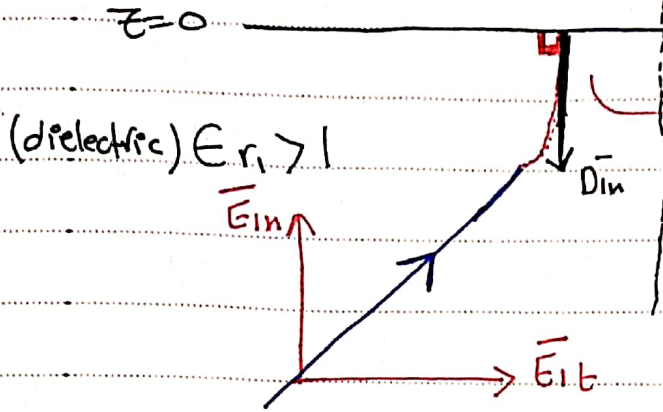 z=0
(dielectric) ϵr₁ > 1
D̄1n
Ē1n
Ē1t